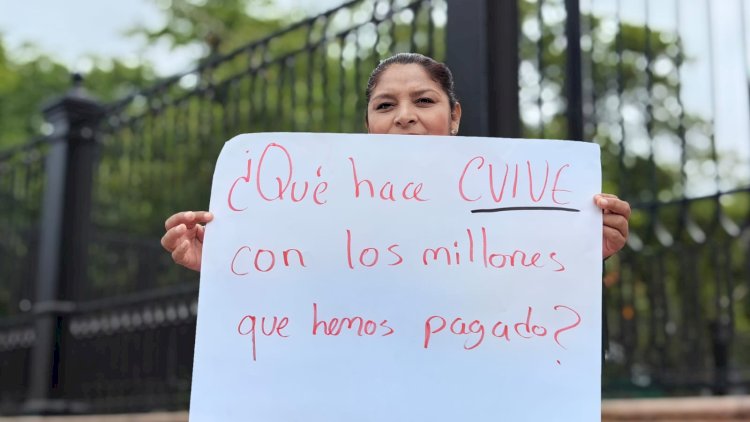 ¿Qué hace CVIVE
con los millones
que hemos pagado?